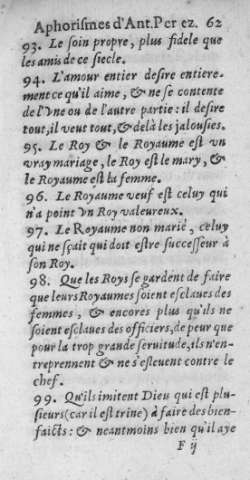 Aphorismes d'Ant. Perez. 62
93. Le soin propre, plus fidele que
les amis de ce siecle.
94. L'amour entier desire entiere-
ment ce qu'il aime, & ne se contente
de l'vne ou de l'autre partie: il desire
tout, il veut tout, & delà les jalousies.
95. Le Roy & le Royaume est vn
vray mariage, le Roy est le mary, &
le Royaume est la femme.
96. Le Royaume veuf est celuy qui
n'a point vn Roy valeureux.
97. Le Royaume non marié, celuy
qui ne sçait qui doit estre successeur à
son Roy.
98. Que les Roys se gardent de faire
que leurs Royaumes soient esclaues des
femmes, & encores plus qu'ils ne
soient esclaues des officiers, de peur que
pour la trop grande seruitude, ils n'en-
treprennent & ne s'esleuent contre le
chef.
99. Qu'ils imitent Dieu qui est plu-
sieurs (car il est trine) à faire des bien-
faicts: & neantmoins bien qu'il aye
F ij